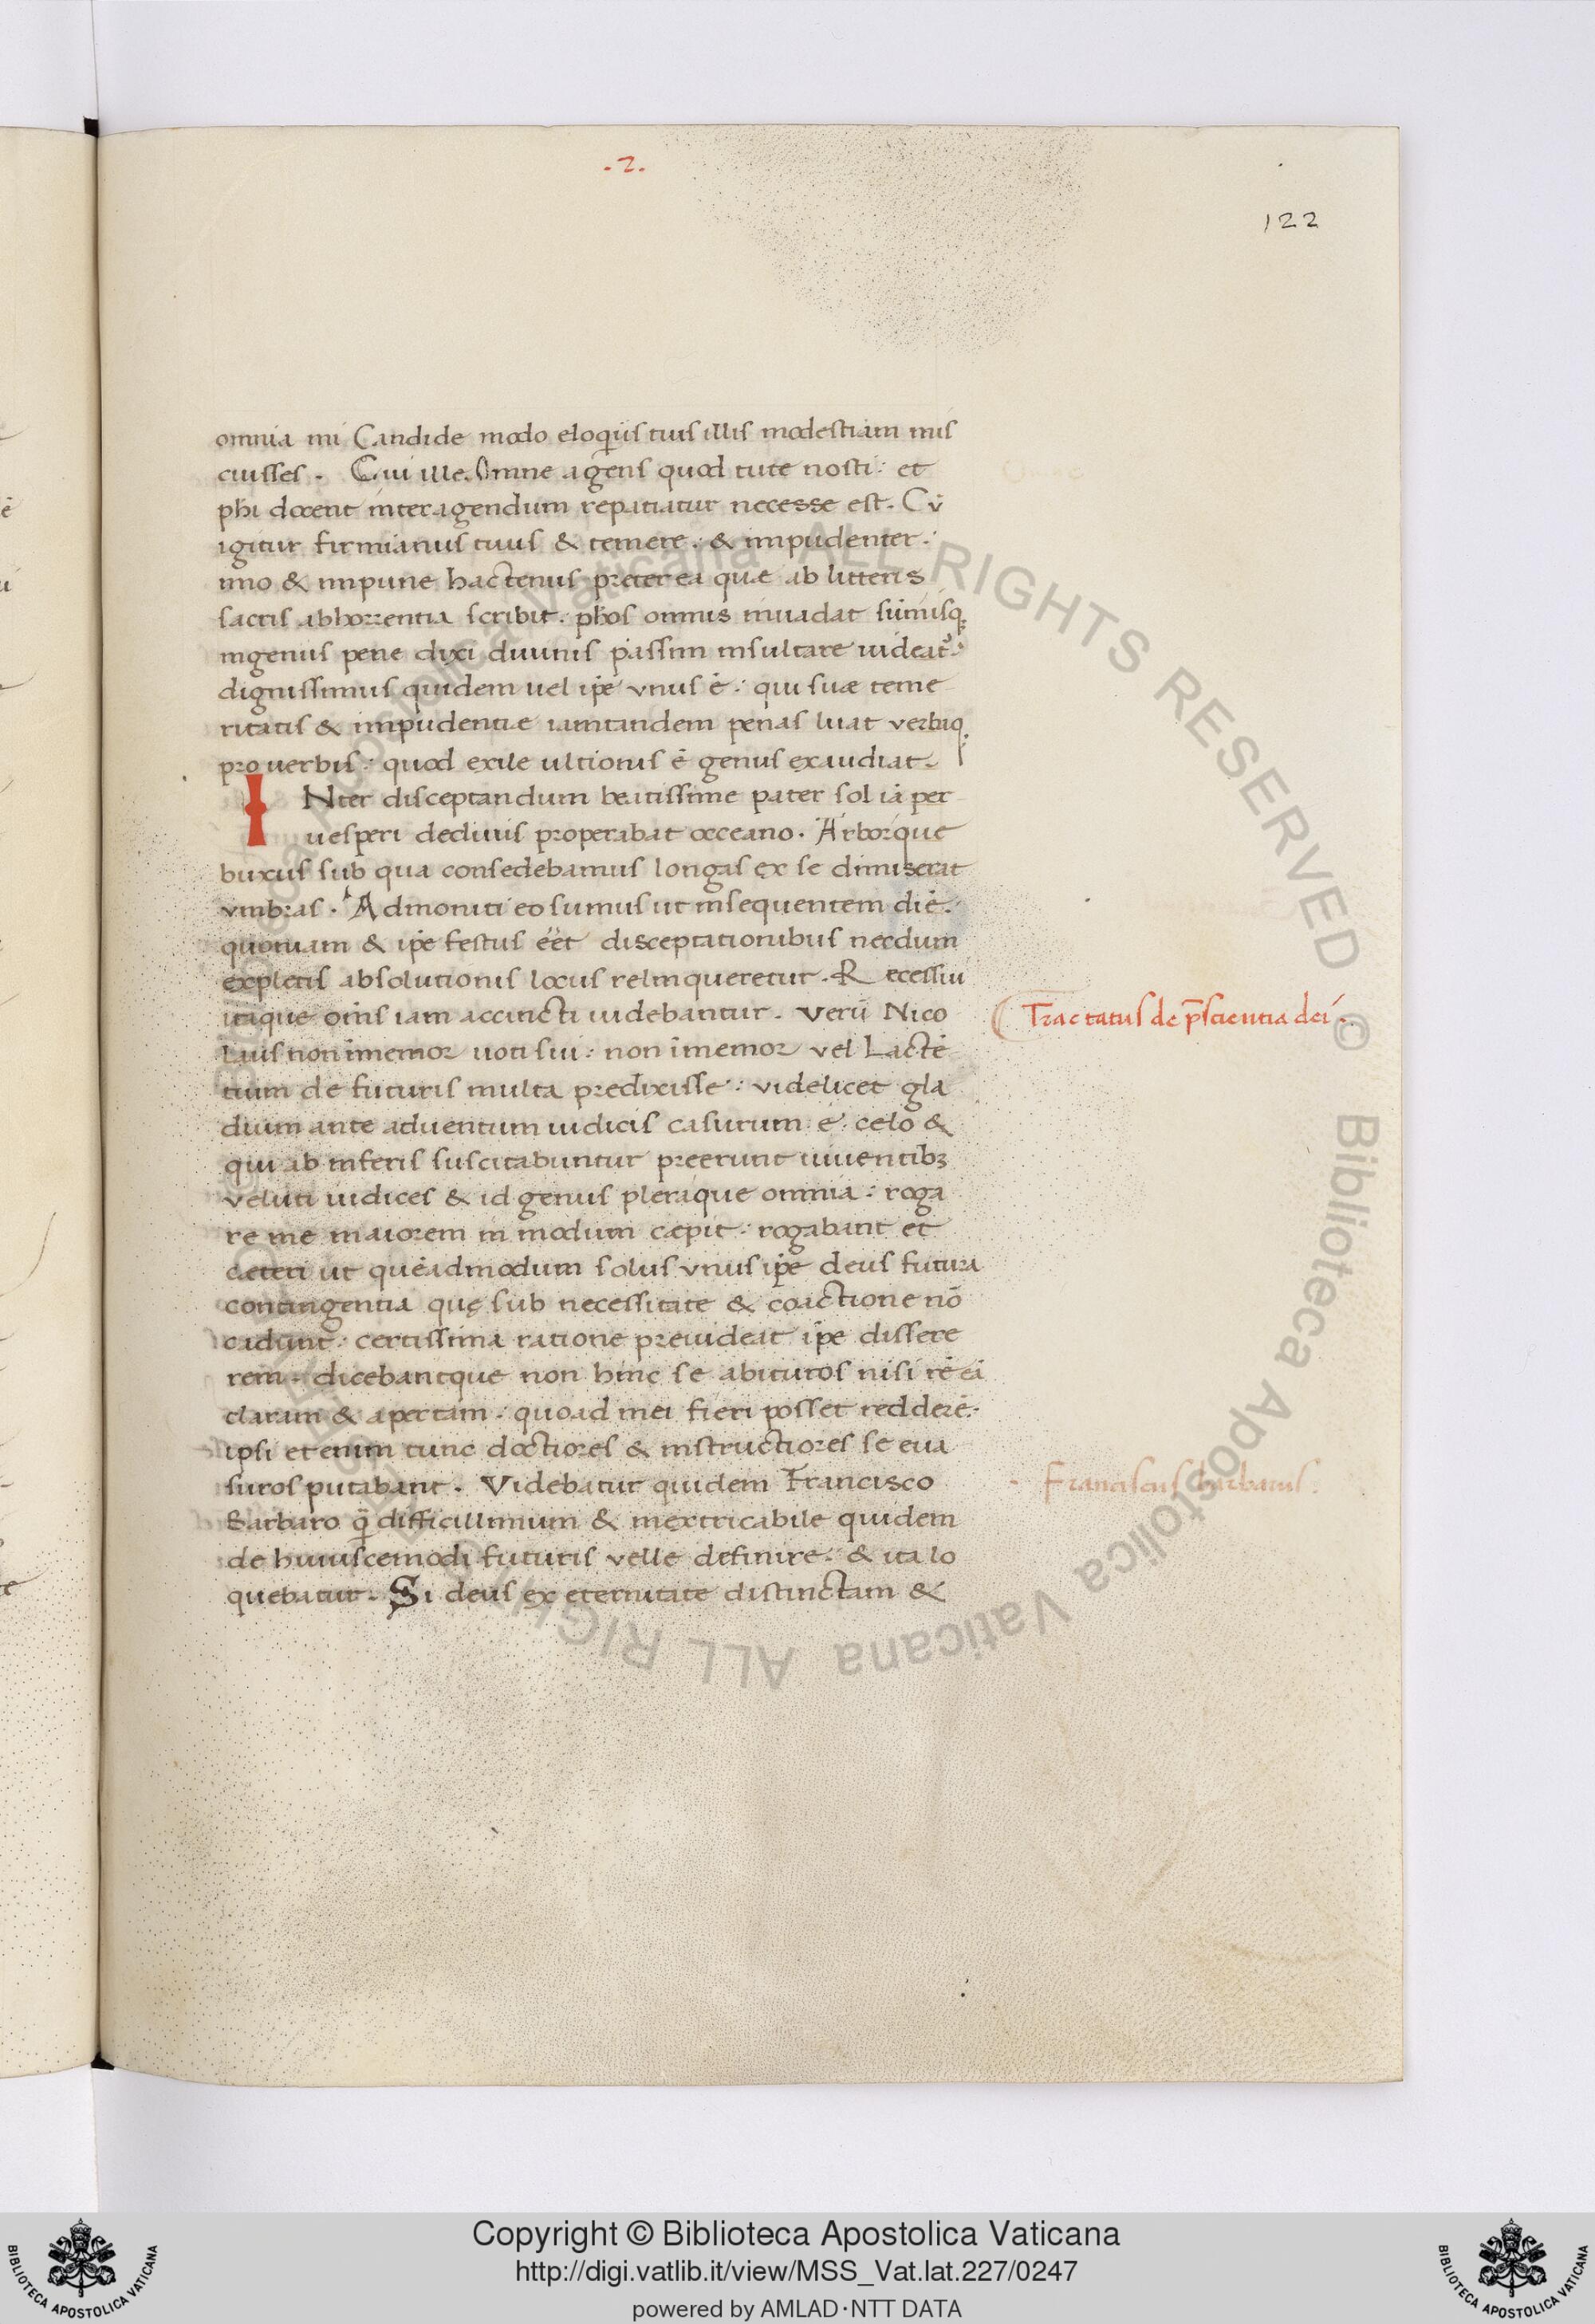 .2.
122
omnia mi Candide modo eloquiis tuis illis modestiam mis
cuisses. Cui ille. Omne agens quod tute nosti: et
phi docent inter agendum repatiatur necesse est. Cū
igitur firmianus tuus & temere: & impudenter:
imo & impune hactenus preter ea quæ ab litteris
sacris abhorrentia scribit: phos omnis inuadat sūmisq
ingeniis pene dixi diuinis passim insultare uideat:
dignissimus quidem uel ipē vnus ē: qui suæ teme
ritatis & impudentiæ iamtandem penas luat verbaq
pro uerbis: quod exile ultionis ē genus exaudiat.
INter disceptandum beatissime pater sol iā per
uesperi decliuis properabat occeano. Arborque
buxus sub qua consedebamus longas ex se dimiserat
vmbras. Admoniti eo sumus ut insequentem diē:
quoniam & ipē festus eēt disceptationibus necdum
expletis absolutionis locus relinqueretur. Recessui
itaque oīns iam accincti uidebantur. Verū Nico
laus non īmemor uoti sui: non īmemor vel Lactē
tium de futuris multa predixisse: videlicet gla
dium ante aduentum iudicis casurum e celo &
qui ab inferis suscitabuntur preerunt uiuentibꝫ
veluti iudices & id genus pleraque omnia: roga
re me maiorem in modum cæpit: rogabant et
cæteri ut quēadmodum solus vnus ipē deus futura
contingentia quę sub necessitate & coactione nō
cadunt: certissima ratione preuideat ipē dissere
rem: dicebantque non hinc se abituros nisi rē eā
claram & apertam: quoad mei fieri posset redderē:
ipsi etenim tunc doctiores & instructiores se eua
suros putabant. Videbatur quidem Francisco
Barbaro q̄ difficillimum & inextricabile quidem
de huiuscemodi futuris velle definire: & ita lo
quebatur. Si deus ex eternitate distinctam &
Tractatus de p̄scientia dei.
Franciscus barbarus.
ALL RIGHTS RESERVED © Biblioteca Apostolica Vaticana
Copyright © Biblioteca Apostolica Vaticana
http://digi.vatlib.it/view/MSS_Vat.lat.227/0247
powered by AMLAD·NTT DATA
BIBLIOTECA APOSTOLICA VATICANA
BIBLIOTECA APOSTOLICA VATICANA